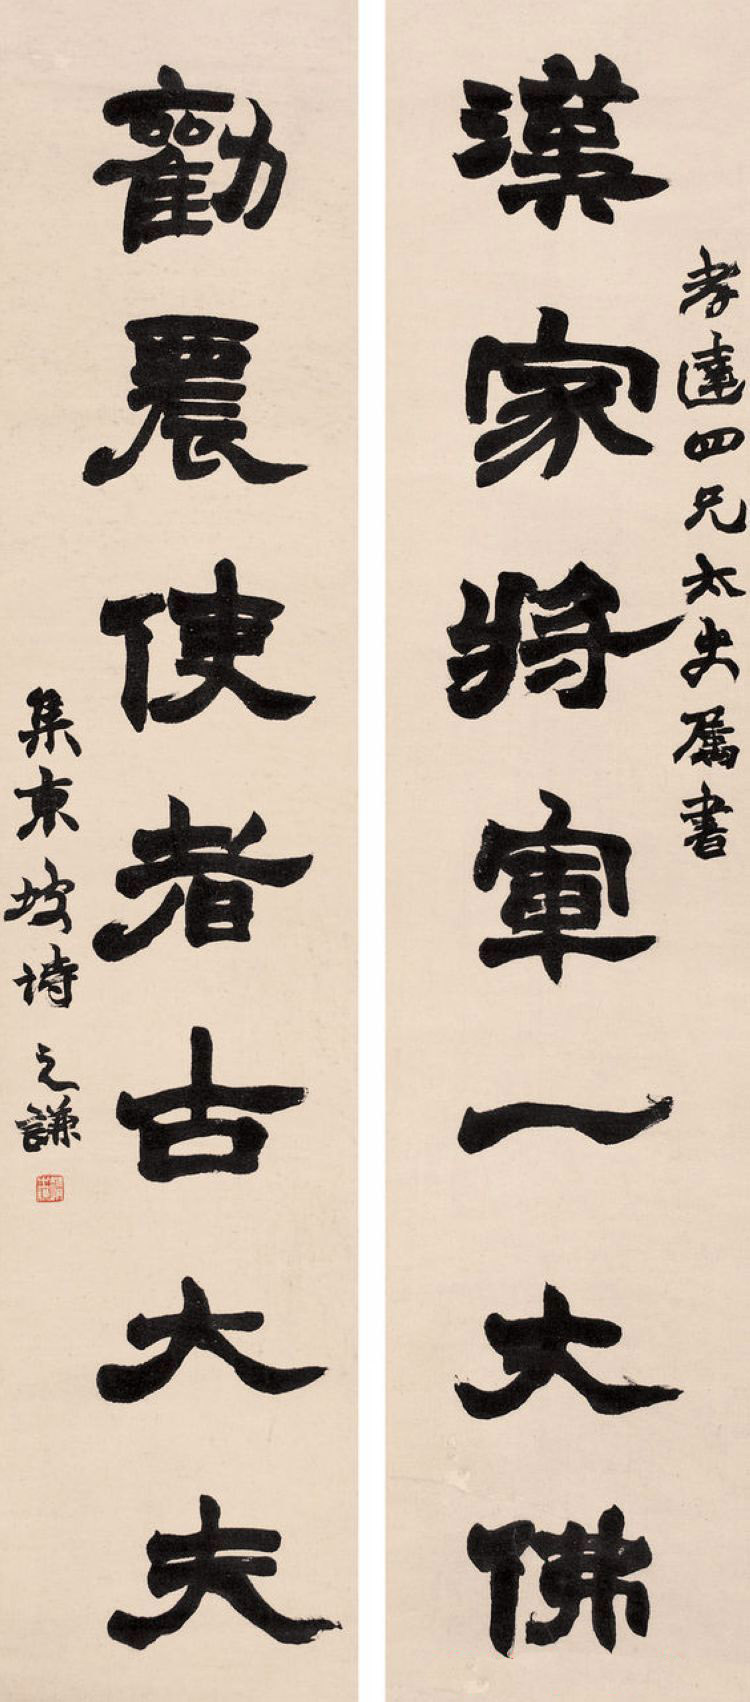 孝達四兄太史屬書
漢家將軍一大佛
勸農使者古大夫
集東坡詩 之謙